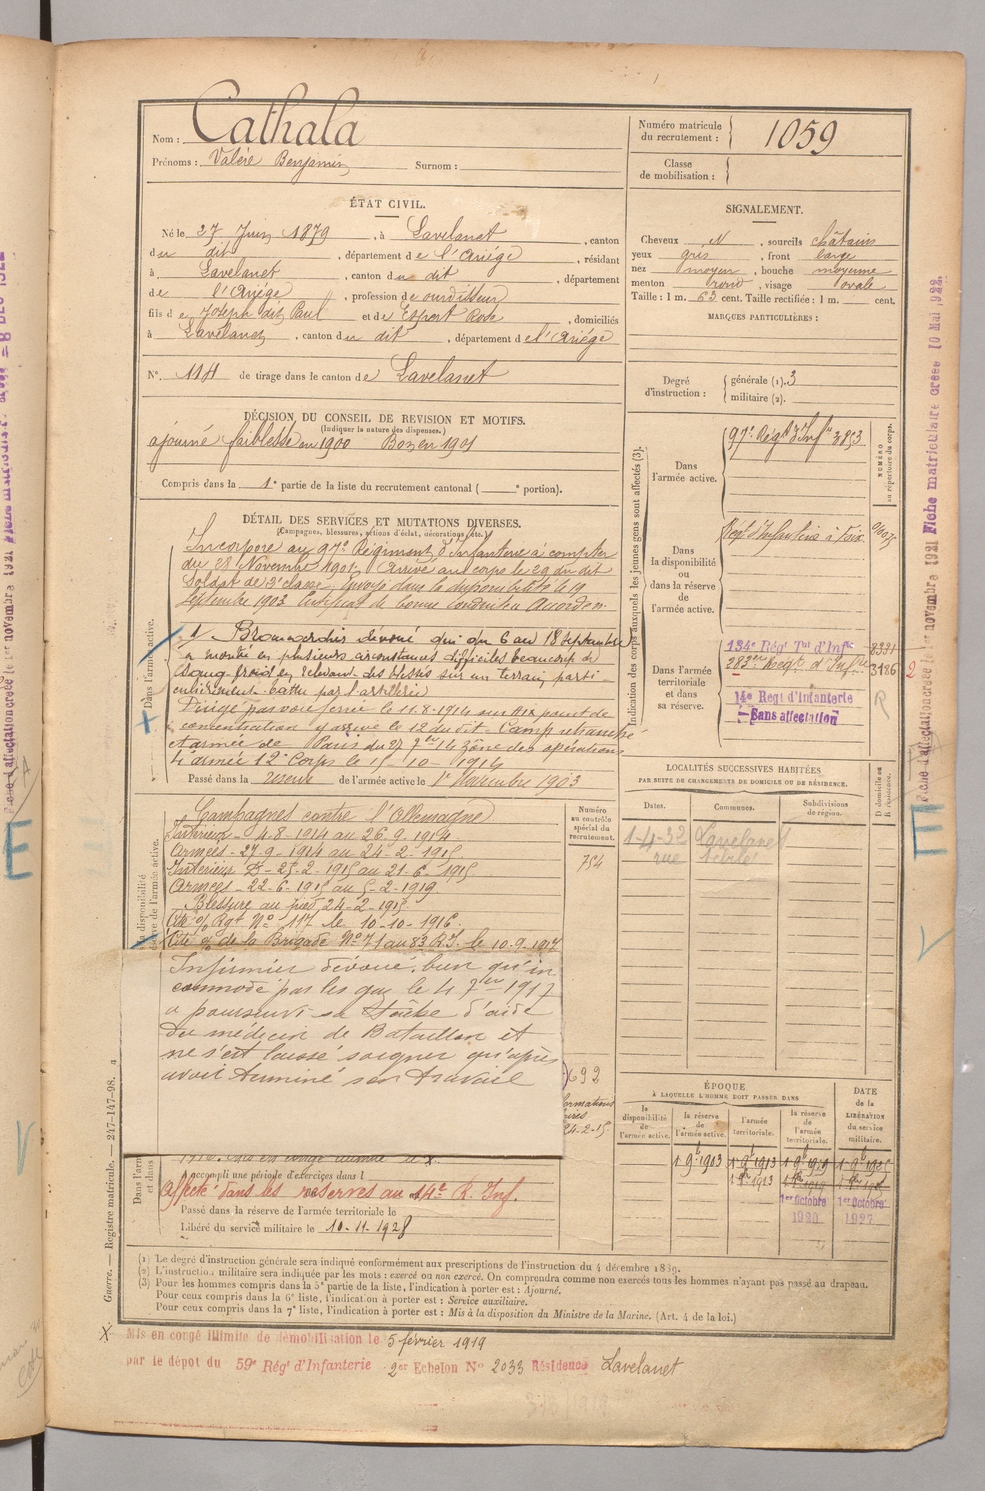 Nom : Cathala
Prénoms : Valère Benjamin Surnom :
Numéro matricule du recrutement : 1059
Classe de mobilisation :
ÉTAT CIVIL.
Né le 27 Juin 1879, à Lavelanet, canton
du dit, département de l'Ariège, résidant
à Lavelanet, canton du dit, département
de l'Ariège, profession de ourdisseur
fils de Joseph dit Paul et de Espert Rose, domiciliés
à Lavelanet, canton du dit, département de l'Ariège
N°. 114 de tirage dans le canton de Lavelanet
SIGNALEMENT.
Cheveux N, sourcils châtains
yeux gris, front large
nez moyen, bouche moyenne
menton rond, visage ovale
Taille : 1 m. 63 cent. Taille rectifiée : 1 m. cent.
MARQUES PARTICULIÈRES :
Degré d'instruction : générale (1). 3
militaire (2).
DÉCISION DU CONSEIL DE REVISION ET MOTIFS.
(Indiquer la nature des dispenses.)
ajourné faiblesse en 1900 Bon en 1901
Compris dans la 1e partie de la liste du recrutement cantonal ( e portion).
DÉTAIL DES SERVICES ET MUTATIONS DIVERSES.
(Campagnes, blessures, actions d'éclat, décorations, etc.)
Incorporé au 97e Régiment d'Infanterie à compter
du 28 Novembre 1901, Arrivé au corps le 29 du dit
Soldat de 2e classe, Envoyé dans la disponibilité le 19
Septembre 1903 Certificat de bonne Conduite Accordé
Brancardier dévoué qui du 6 au 18 Septembre
a montré en plusieurs circonstances difficiles beaucoup de
sang froid en relevant des blessés sur un terrain parti-
culièrement battu par l'artillerie
Dirigé par voie ferrée le 11.8.1914 sur Aix point de
concentration y arrivé le 12 du dit. Camp retranché
et armée de Paris du 27 7bre 14 Zône des opérations
4e armée 12e Corps le 15-10-1914
Passé dans la réserve de l'armée active le 1er Novembre 1903
Dans l'armée active.
Indication des corps auxquels les jeunes gens sont affectés (3).
NUMÉRO au répertoire du corps.
Dans l'armée active. 97e Régt d'Inf 3853
Dans la disponibilité ou dans la réserve de l'armée active. Régt d'Infanterie à Foix
Dans l'armée territoriale et dans sa réserve. 134e Régt Tal d'Infie 8331
283e Régt d'Infie 3186
14e Régt d'Infanterie
Sans affectation
R
2
Campagnes contre l'Allemagne
Intérieur - 4-8-1914 au 26.9.1914.
Armées - 27-9-1914 au 24-2-1915
Intérieur - 25-2-1915 au 21-6-1915
Armées - 22-6-1915 au 5-2-1919
Blessure au pied 24-2-1915
Cité o/ Rgt N° 117 le 10-10-1916
Cité o/ de la Brigade N° 71 au 83 R.I. le 10.9.1917
Infirmier dévoué, bien qu'in
commodé par les gaz le 4 7bre 1917
a poursuivi sa tâche d'aide
du médecin de Bataillon et
ne s'est laissé soigner qu'après
avoir terminé son travail
Numéro au contrôle spécial du recrutement.
754
692
24-2-15
LOCALITÉS SUCCESSIVES HABITÉES
PAR SUITE DE CHANGEMENTS DE DOMICILE OU DE RÉSIDENCE.
Dates. Communes. Subdivisions de région. D domicile ou R résidence.
1-4-32 Lavelanet
rue
ÉPOQUE
À LAQUELLE L'HOMME DOIT PASSER DANS
la disponibilité de l'armée active.
la réserve de l'armée active.
l'armée territoriale.
la réserve de l'armée territoriale.
DATE de la LIBÉRATION du service militaire.
1 9b 1903 1 9b 1913 1 9b 1919 1 9b 1925
1er Octobre 1920 1er Octobre 1927
Accompli une période d'exercices dans l
Affecté dans les réserves au 14e R. Inf.
Passé dans la réserve de l'armée territoriale le
Libéré du service militaire le 10-11-1928
(1) Le degré d'instruction générale sera indiqué conformément aux prescriptions de l'instruction du 4 décembre 1889.
(2) L'instruction militaire sera indiquée par les mots : exercé ou non exercé. On comprendra comme non exercés tous les hommes n'ayant pas passé au drapeau.
(3) Pour les hommes compris dans la 5e partie de la liste, l'indication à porter est : Ajourné.
Pour ceux compris dans la 6e liste, l'indication à porter est : Service auxiliaire.
Pour ceux compris dans la 7e liste, l'indication à porter est : Mis à la disposition du Ministre de la Marine. (Art. 4 de la loi.)
Guerre. — Registre matricule. — 247-147-98.
X Mis en congé illimité de démobilisation le 5 février 1919
par le dépôt du 59e Régt d'Infanterie 2er Echelon N° 2033 Résidence Lavelanet
Fiche d'affectation créée le 1er novembre 1921 Fiche matriculaire créée 10 Mai 1922